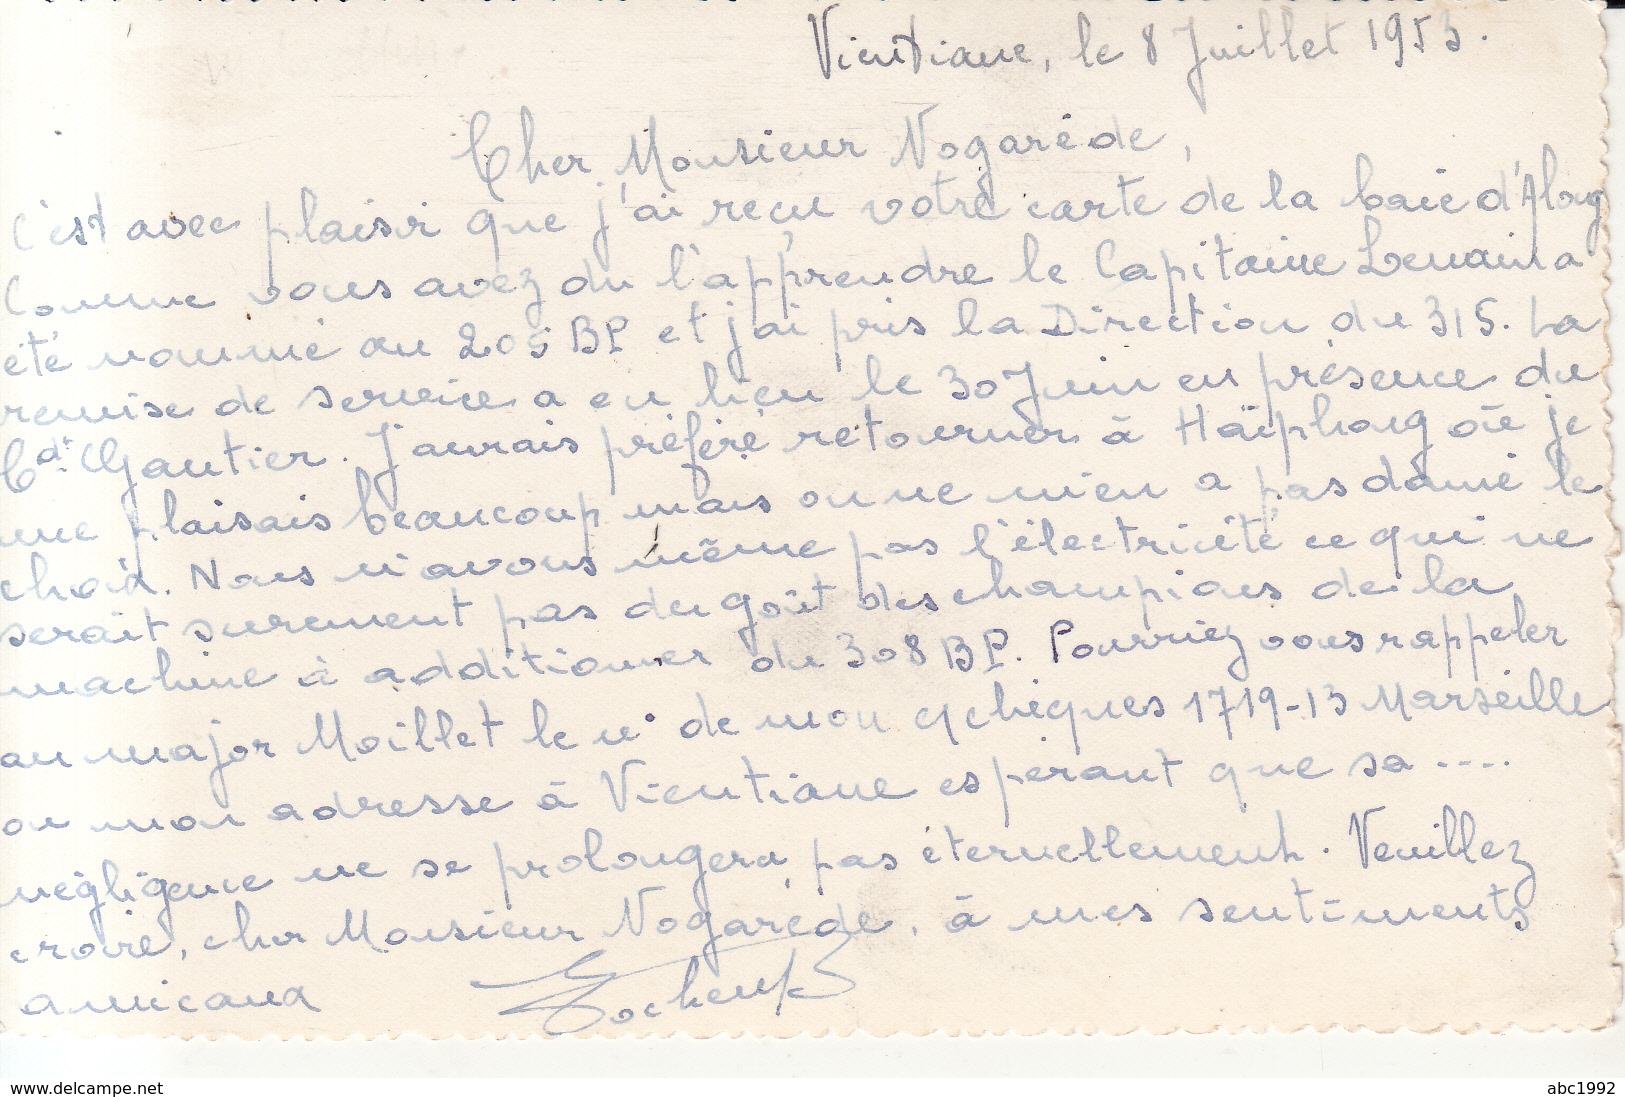 Vientiane, le 8 Juillet 1953.
Cher Monsieur Nogaréde,
C'est avec plaisir que j'ai reçu votre carte de la baie d'Along
Comme vous avez du l'apprendre le Capitaine Lemain a
été nommé au 205 BP et j'ai pris la Direction du 315. La
remise de service a eu lieu le 30 Juin en présence du
Cdt Gautier. J'aurais préféré retourner à Haïphong où je
me plaisais beaucoup mais on ne m'en a pas donné le
choix. Nous n'avons même pas l'électricité ce qui ne
serait surement pas du goût des champions de la
machine à additionner du 308 BP. Pourriez vous rappeler
au major Moillet le n° de mon cpte chèques 1719-13 Marseille
ou mon adresse à Vientiane espérant que sa ....
négligence ne se prolongera pas éternellement. Veuillez
croire, cher Monsieur Nogaréde, à mes sentiments
amicaux
www.delcampe.net
abc1992